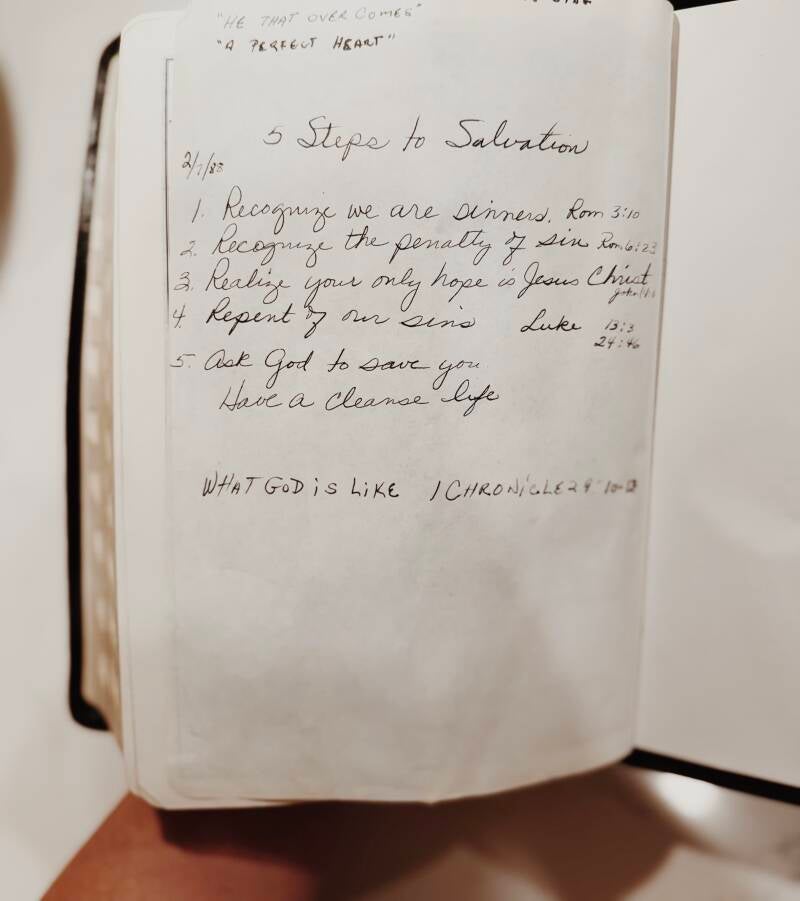 "HE THAT OVER COMES"
"A PERFECT HEART"
5 Steps to Salvation
2/7/88
1. Recognize we are sinners. Rom 3:10
2. Recognize the penalty of sin Rom 6:23
3. Realize your only hope is Jesus Christ
John
4. Repent of our sins Luke 13:3
24:46
5. Ask God to save you
Have a cleanse life
WHAT GOD iS LiKE 1 CHRONiCLE 29:10-